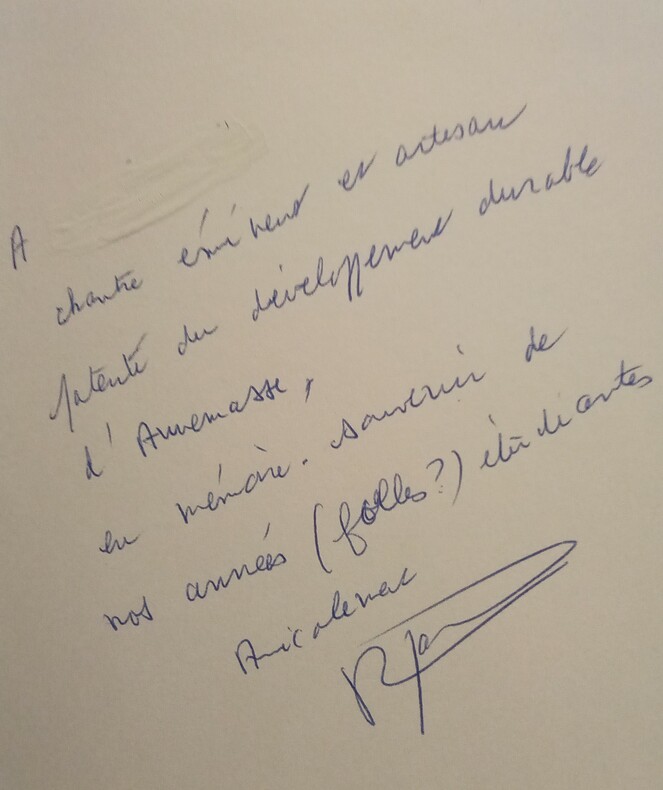 A
chantre éminent et artisan
patenté du développement durable
d'Annemasse,
en mémoire-souvenir de
nos années (folles?) étudiantes
Amicalement